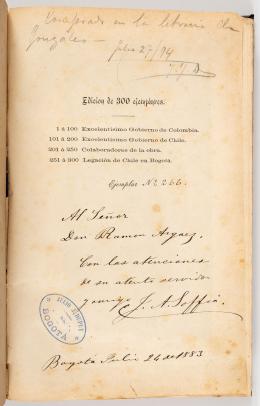 Comprado en la librería de
Gonzáles —
Julio 27/94
Edicion de 300 ejemplares.
1 á 100 Excelentísimo Gobierno de Colombia.
101 á 200 Excelentísimo Gobierno de Chile.
201 á 250 Colaboradores de la obra.
251 á 300 Legación de Chile en Bogotá.
Ejemplar Nº 266.
Al Señor
Don Ramon
Con las atenciones
de su atento servidor
y amigo J. A. Soffia.
BOGOTA
Bogotá Julio 24 de 1883